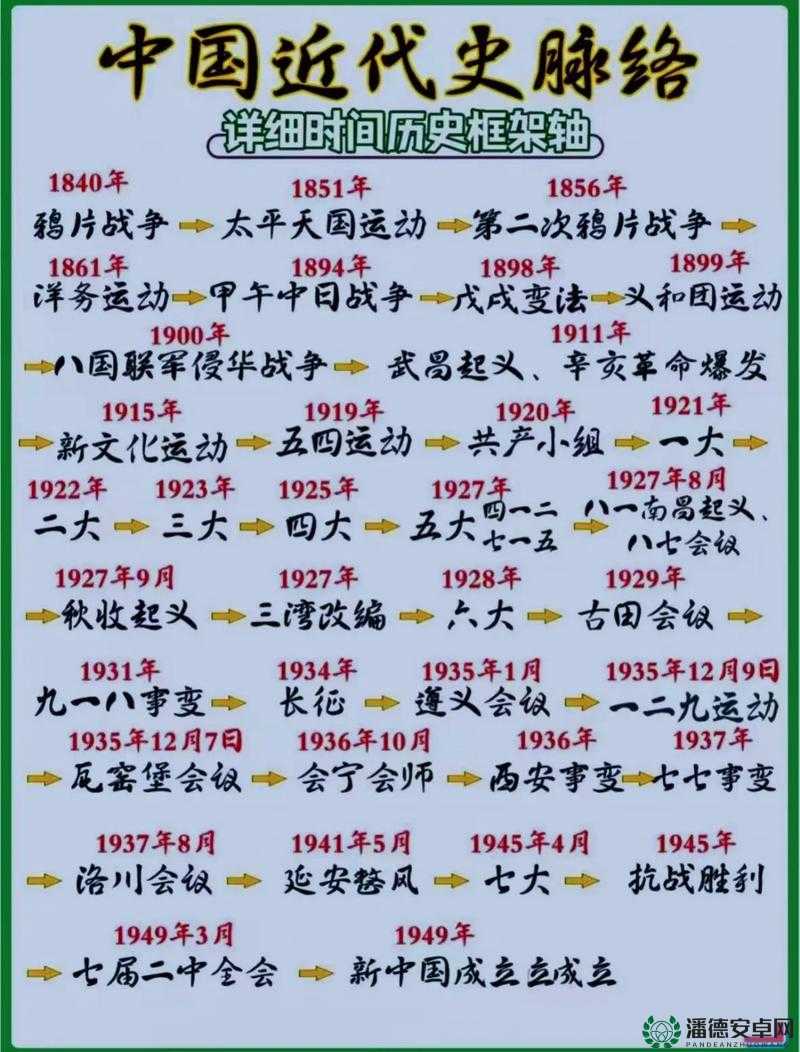 中国近代史脉络
详细时间历史框架轴
1840年 1851年 1856年
鸦片战争 太平天国运动 第二次鸦片战争
1861年 1894年 1898年 1899年
洋务运动 甲午中日战争 戊戌变法 义和团运动
1900年 1911年
八国联军侵华战争 武昌起义、辛亥革命爆发
1915年 1919年 1920年 1921年
新文化运动 五四运动 共产小组 一大
1922年 1923年 1925年 1927年 1927年8月
二大 三大 四大 五大 四一二 八一南昌起义、
七一五 八七会议
1927年9月 1927年 1928年 1929年
秋收起义 三湾改编 六大 古田会议
1931年 1934年 1935年1月 1935年12月9日
九一八事变 长征 遵义会议 一二九运动
1935年12月7日 1936年10月 1936年 1937年
瓦窑堡会议 会宁会师 西安事变 七七事变
1937年8月 1941年5月 1945年4月 1945年
洛川会议 延安整风 七大 抗战胜利
1949年3月 1949年
七届二中全会 新中国成立立成立
潘德安卓网
PANDEANZHUOWAN